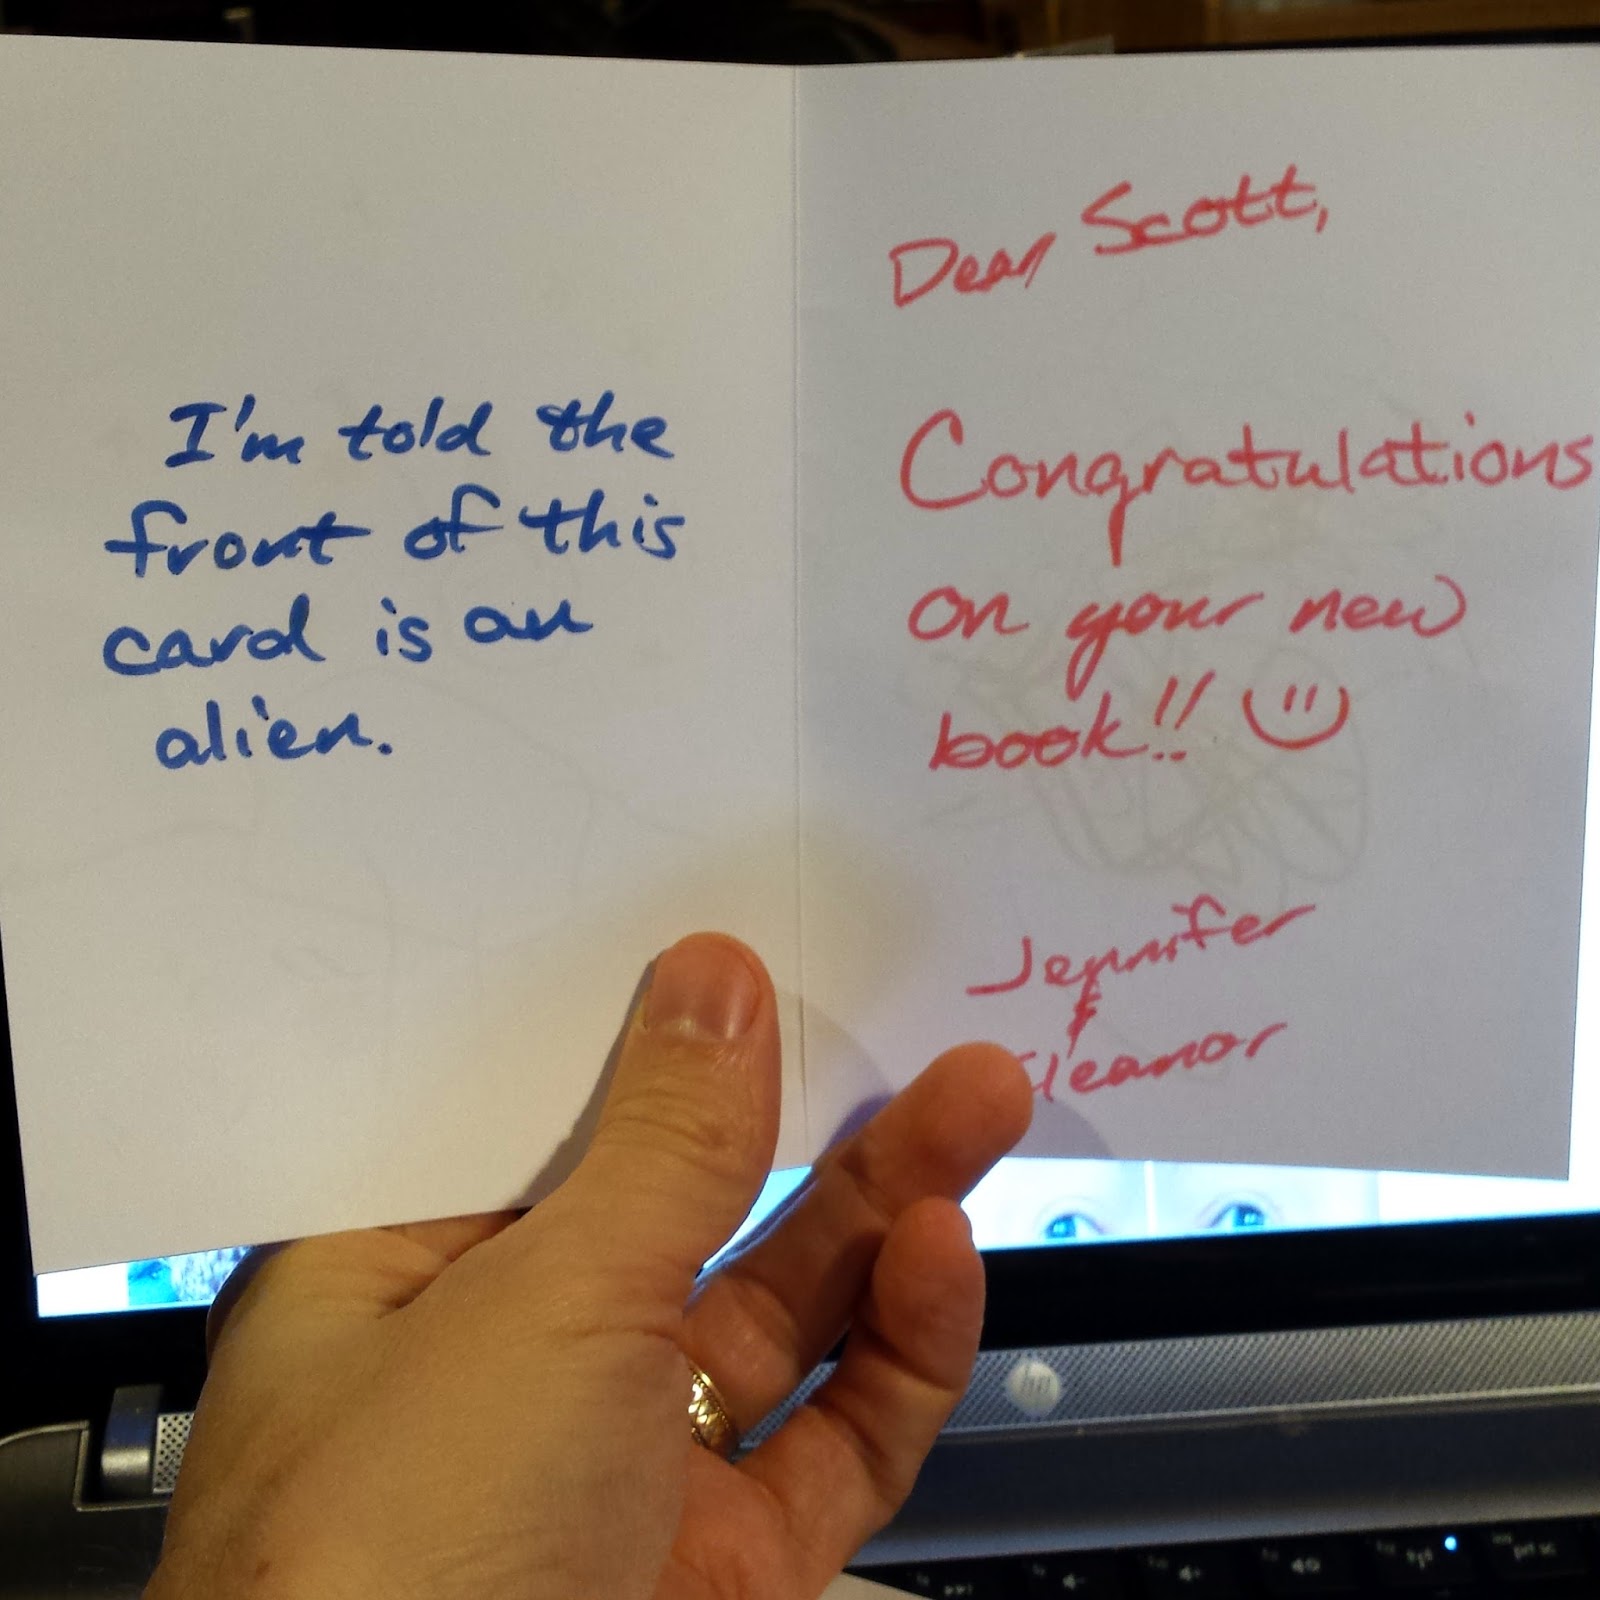 I'm told the
front of this
card is an
alien.
Dear Scott,
Congratulations
on your new
book!!
Jennifer
&
Eleanor
hp
prt sc